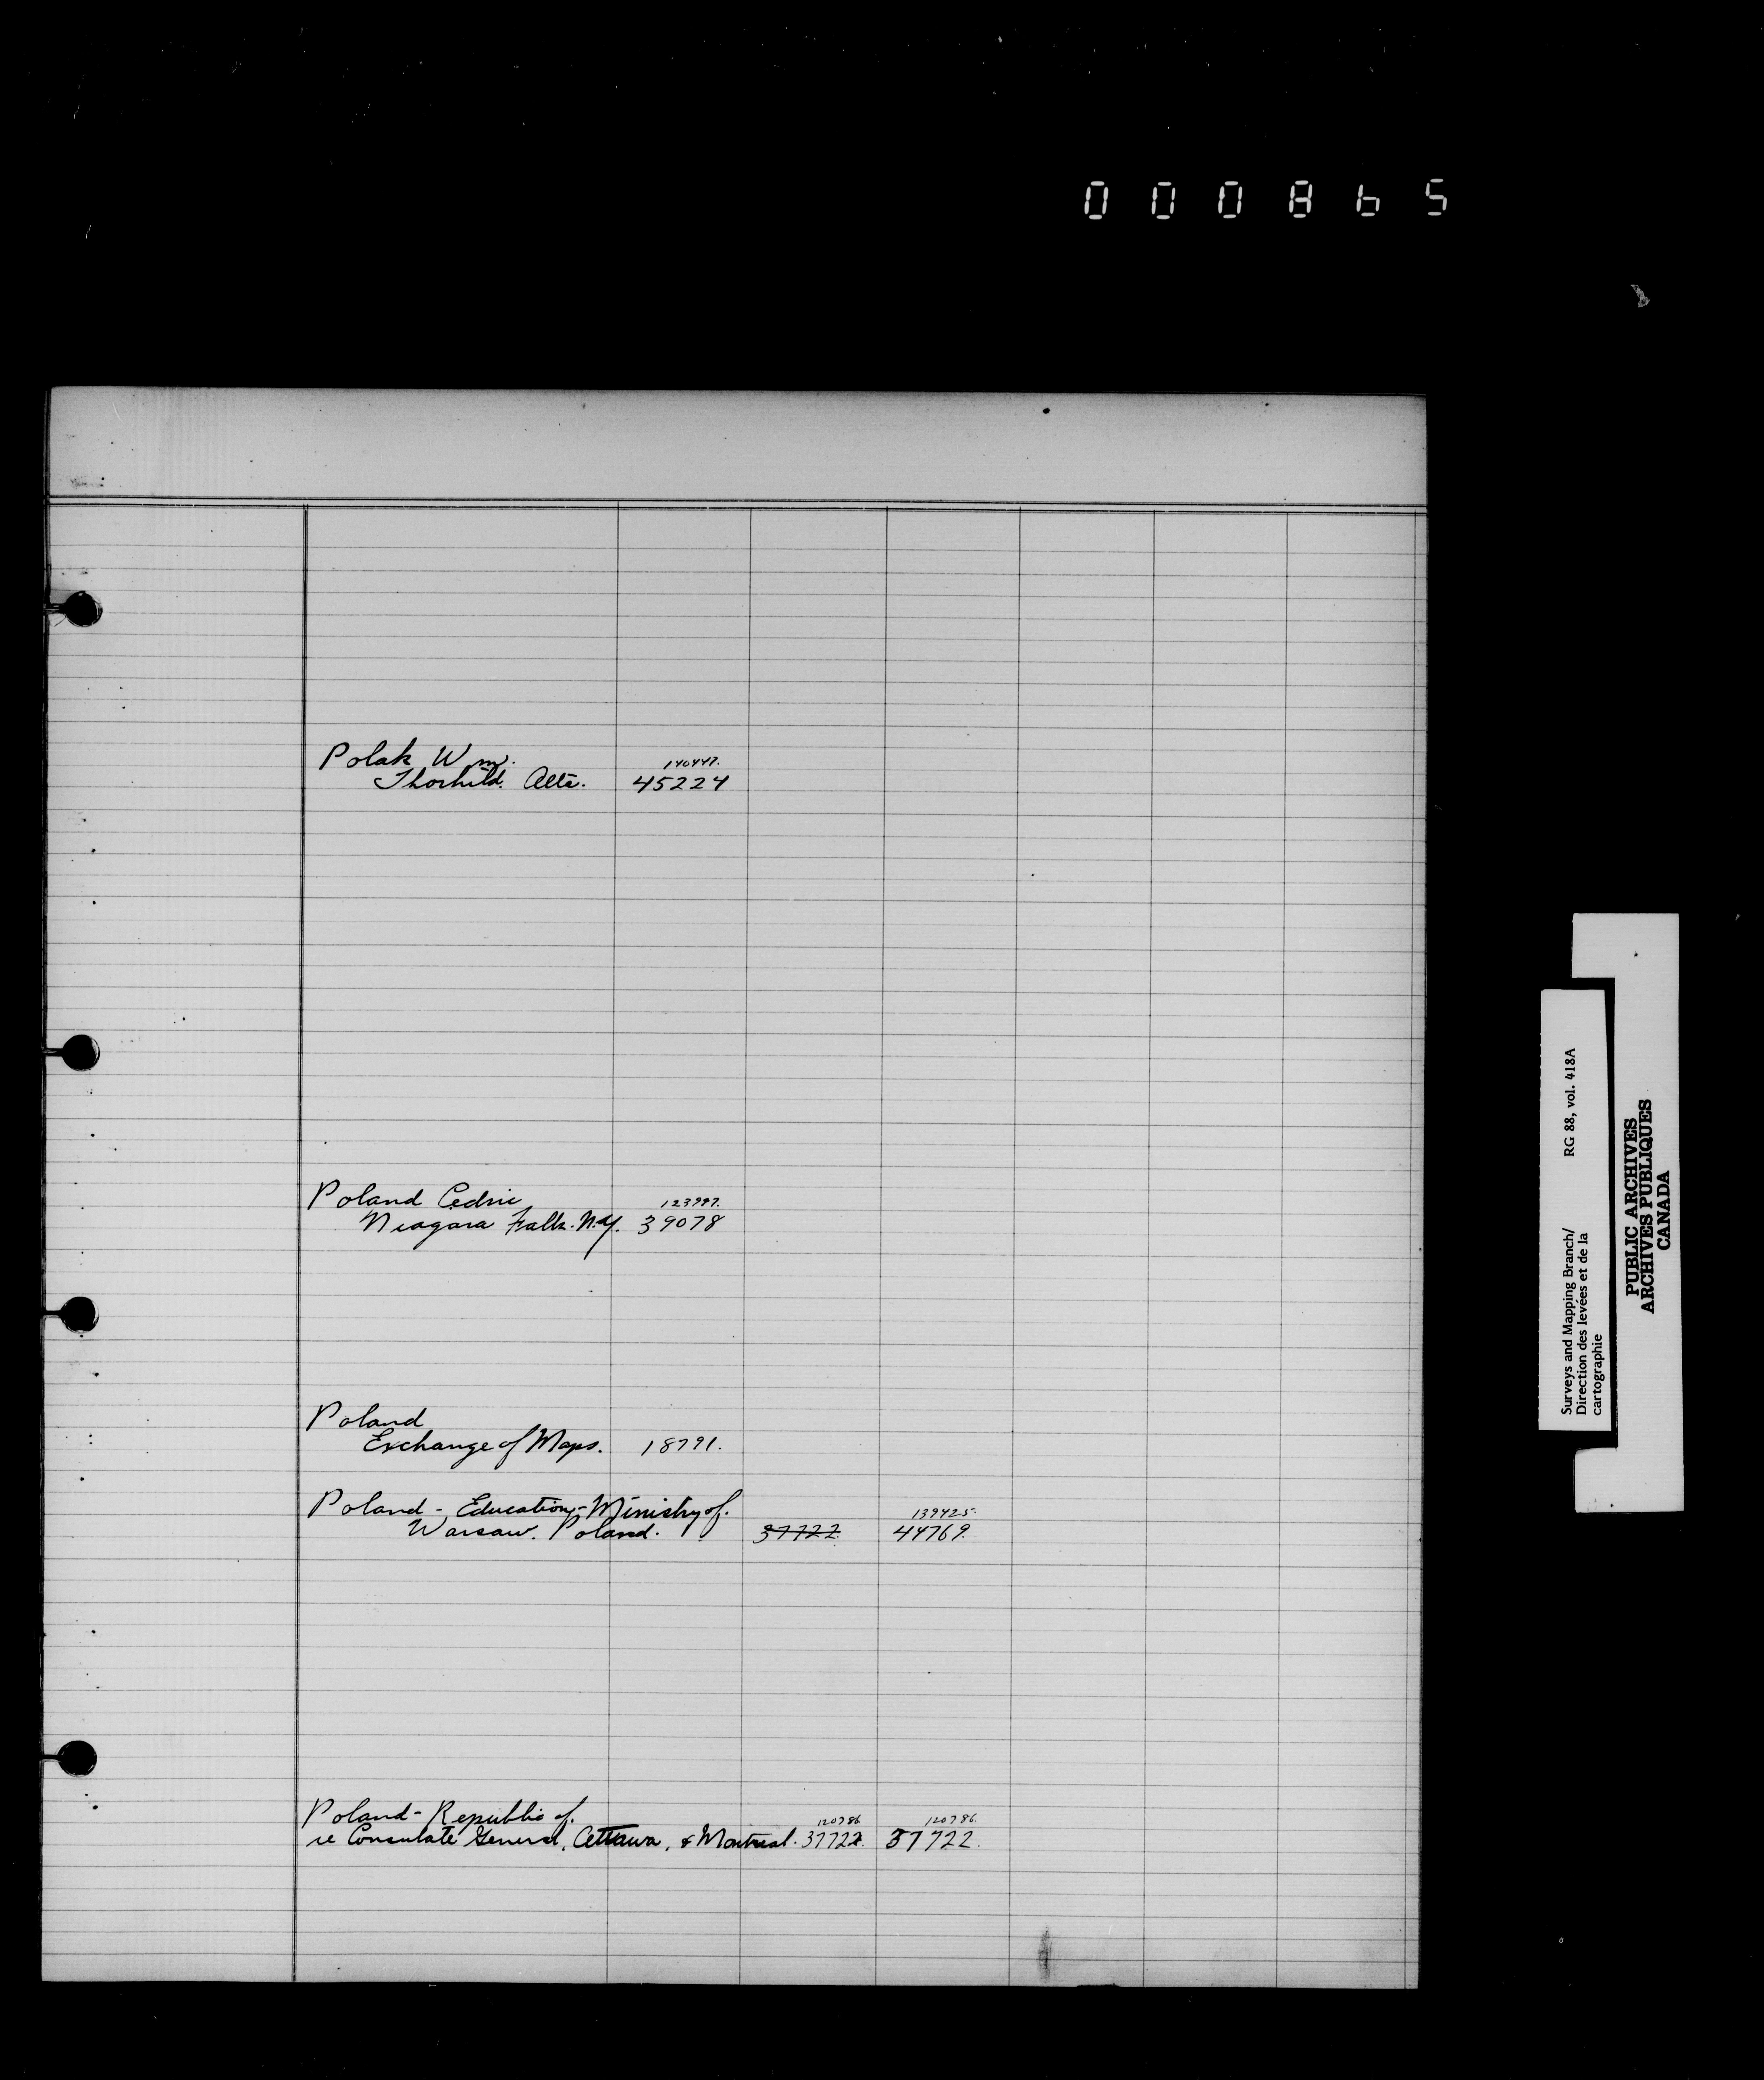 000865
Polak Wm. 140447.
Thorhild. Alta. 45224
Poland Cedric 123997.
Niagara Falls. N.Y. 39078
Poland
Exchange of Maps. 18791.
Poland - Education - Ministry of. 139425.
Warsaw. Poland. 37722. 44769.
Poland - Republic of. 120786 120786.
re Consulate General, Ottawa, & Montreal. 37722. 37722.
Surveys and Mapping Branch/ RG 88, vol. 418A
Direction des levées et de la
cartographie
PUBLIC ARCHIVES
ARCHIVES PUBLIQUES
CANADA